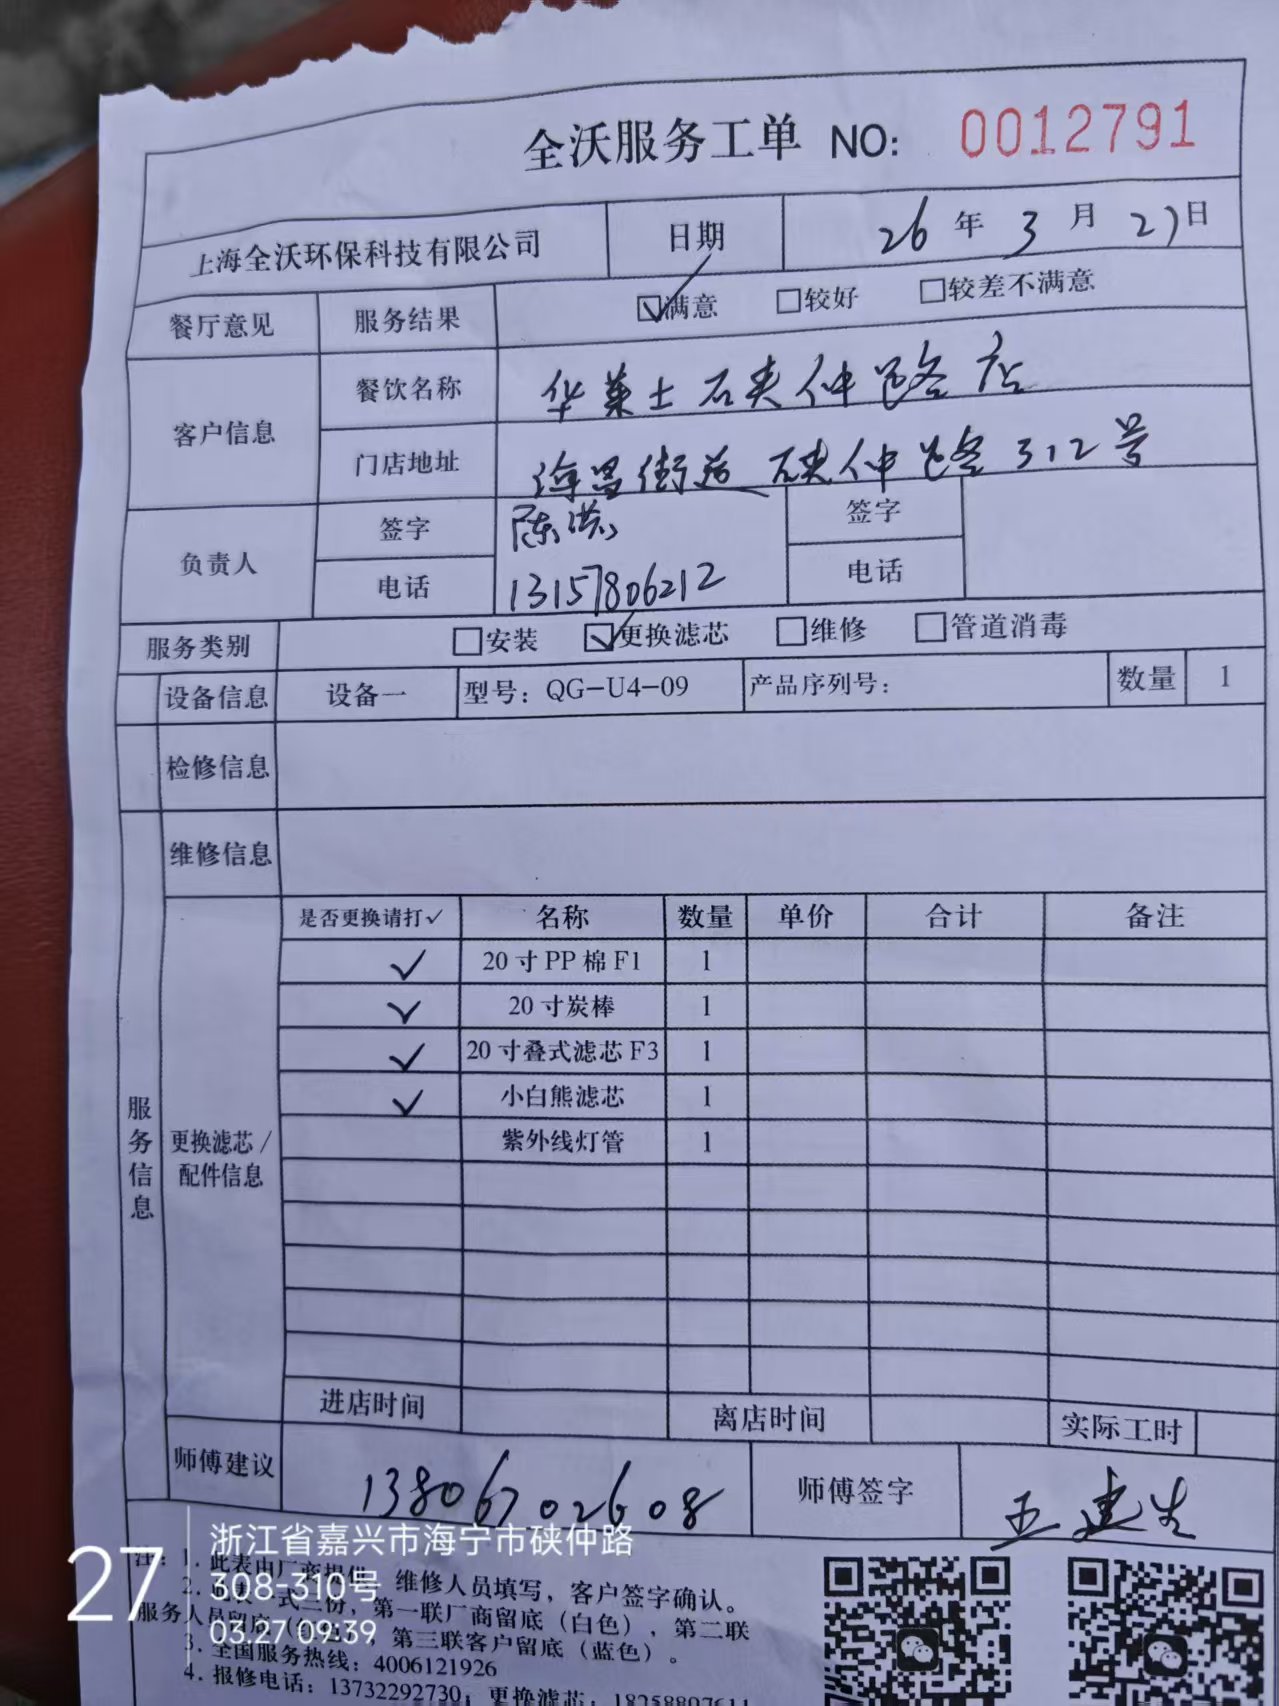 全沃服务工单 NO: 0012791
上海全沃环保科技有限公司 日期 26年3月27日
餐厅意见 服务结果 ☑满意 □较好 □较差不满意
客户信息 餐饮名称 华莱士石夹仲路店
门店地址 海昌街道硖仲路312号
负责人 签字 陈洪 签字
电话 13157806212 电话
服务类别 □安装 ☑更换滤芯 □维修 □管道消毒
设备信息 设备一 型号：QG-U4-09 产品序列号： 数量 1
检修信息
维修信息
服务信息
更换滤芯/配件信息
是否更换请打✓ 名称 数量 单价 合计 备注
✓ 20寸PP棉F1 1
✓ 20寸炭棒 1
✓ 20寸叠式滤芯F3 1
✓ 小白熊滤芯 1
紫外线灯管 1
进店时间 离店时间 实际工时
师傅建议 13806702608 师傅签字
注：1.此表由厂商提供，维修人员填写，客户签字确认。
2. 一式三份，第一联厂商留底（白色），第二联
服务人员留底 ，第三联客户留底（蓝色）。
3.全国服务热线：4006121926
4.报修电话：13732292730；更换滤芯：
27
浙江省嘉兴市海宁市硖仲路
308-310号
03.27 09:39